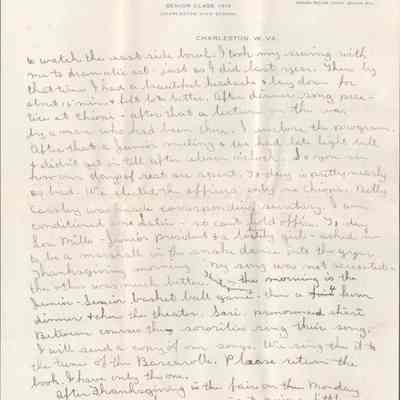 SENIOR CLASS 1919
CHARLESTON HIGH SCHOOL
CHARLESTON, W. VA.
to watch the east side bowl. I took my sewing with
me to dramatic art - just as I did last year. Then by
that time I had a beautiful headache & lay down for
about 15 min. & felt lots better. After dinner song prac-
tice at Chioni - after that a lecture on the war
by a man who had been there. I enclose the program.
After that a Junior meeting & we had late light till
& didn't get in till after eleven o'clock. So you see
how our days of rest are spent. To-day is pretty nearly
as bad. We elected officers, only in Chiopi. Betty
was made corresponding secretary. I am
conditioned in Latin - so can't hold office. To-day
Lou Mills - Junior president & a lovely girl - asked me
to be a marshall in the snake dance into the gym
Thanksgiving morning. My song was not accepted -
the other was much better. In the morning is the
Junior-Senior basket ball game - then a four hour
dinner & then the theater. Sari. pronounced
Between courses the sororities sing their song.
I will send a copy of our songs. We sing the it to
the tune of the Barcarolle. Please return the
book. I have only the one.
After Thanksgiving is the fair on the Monday